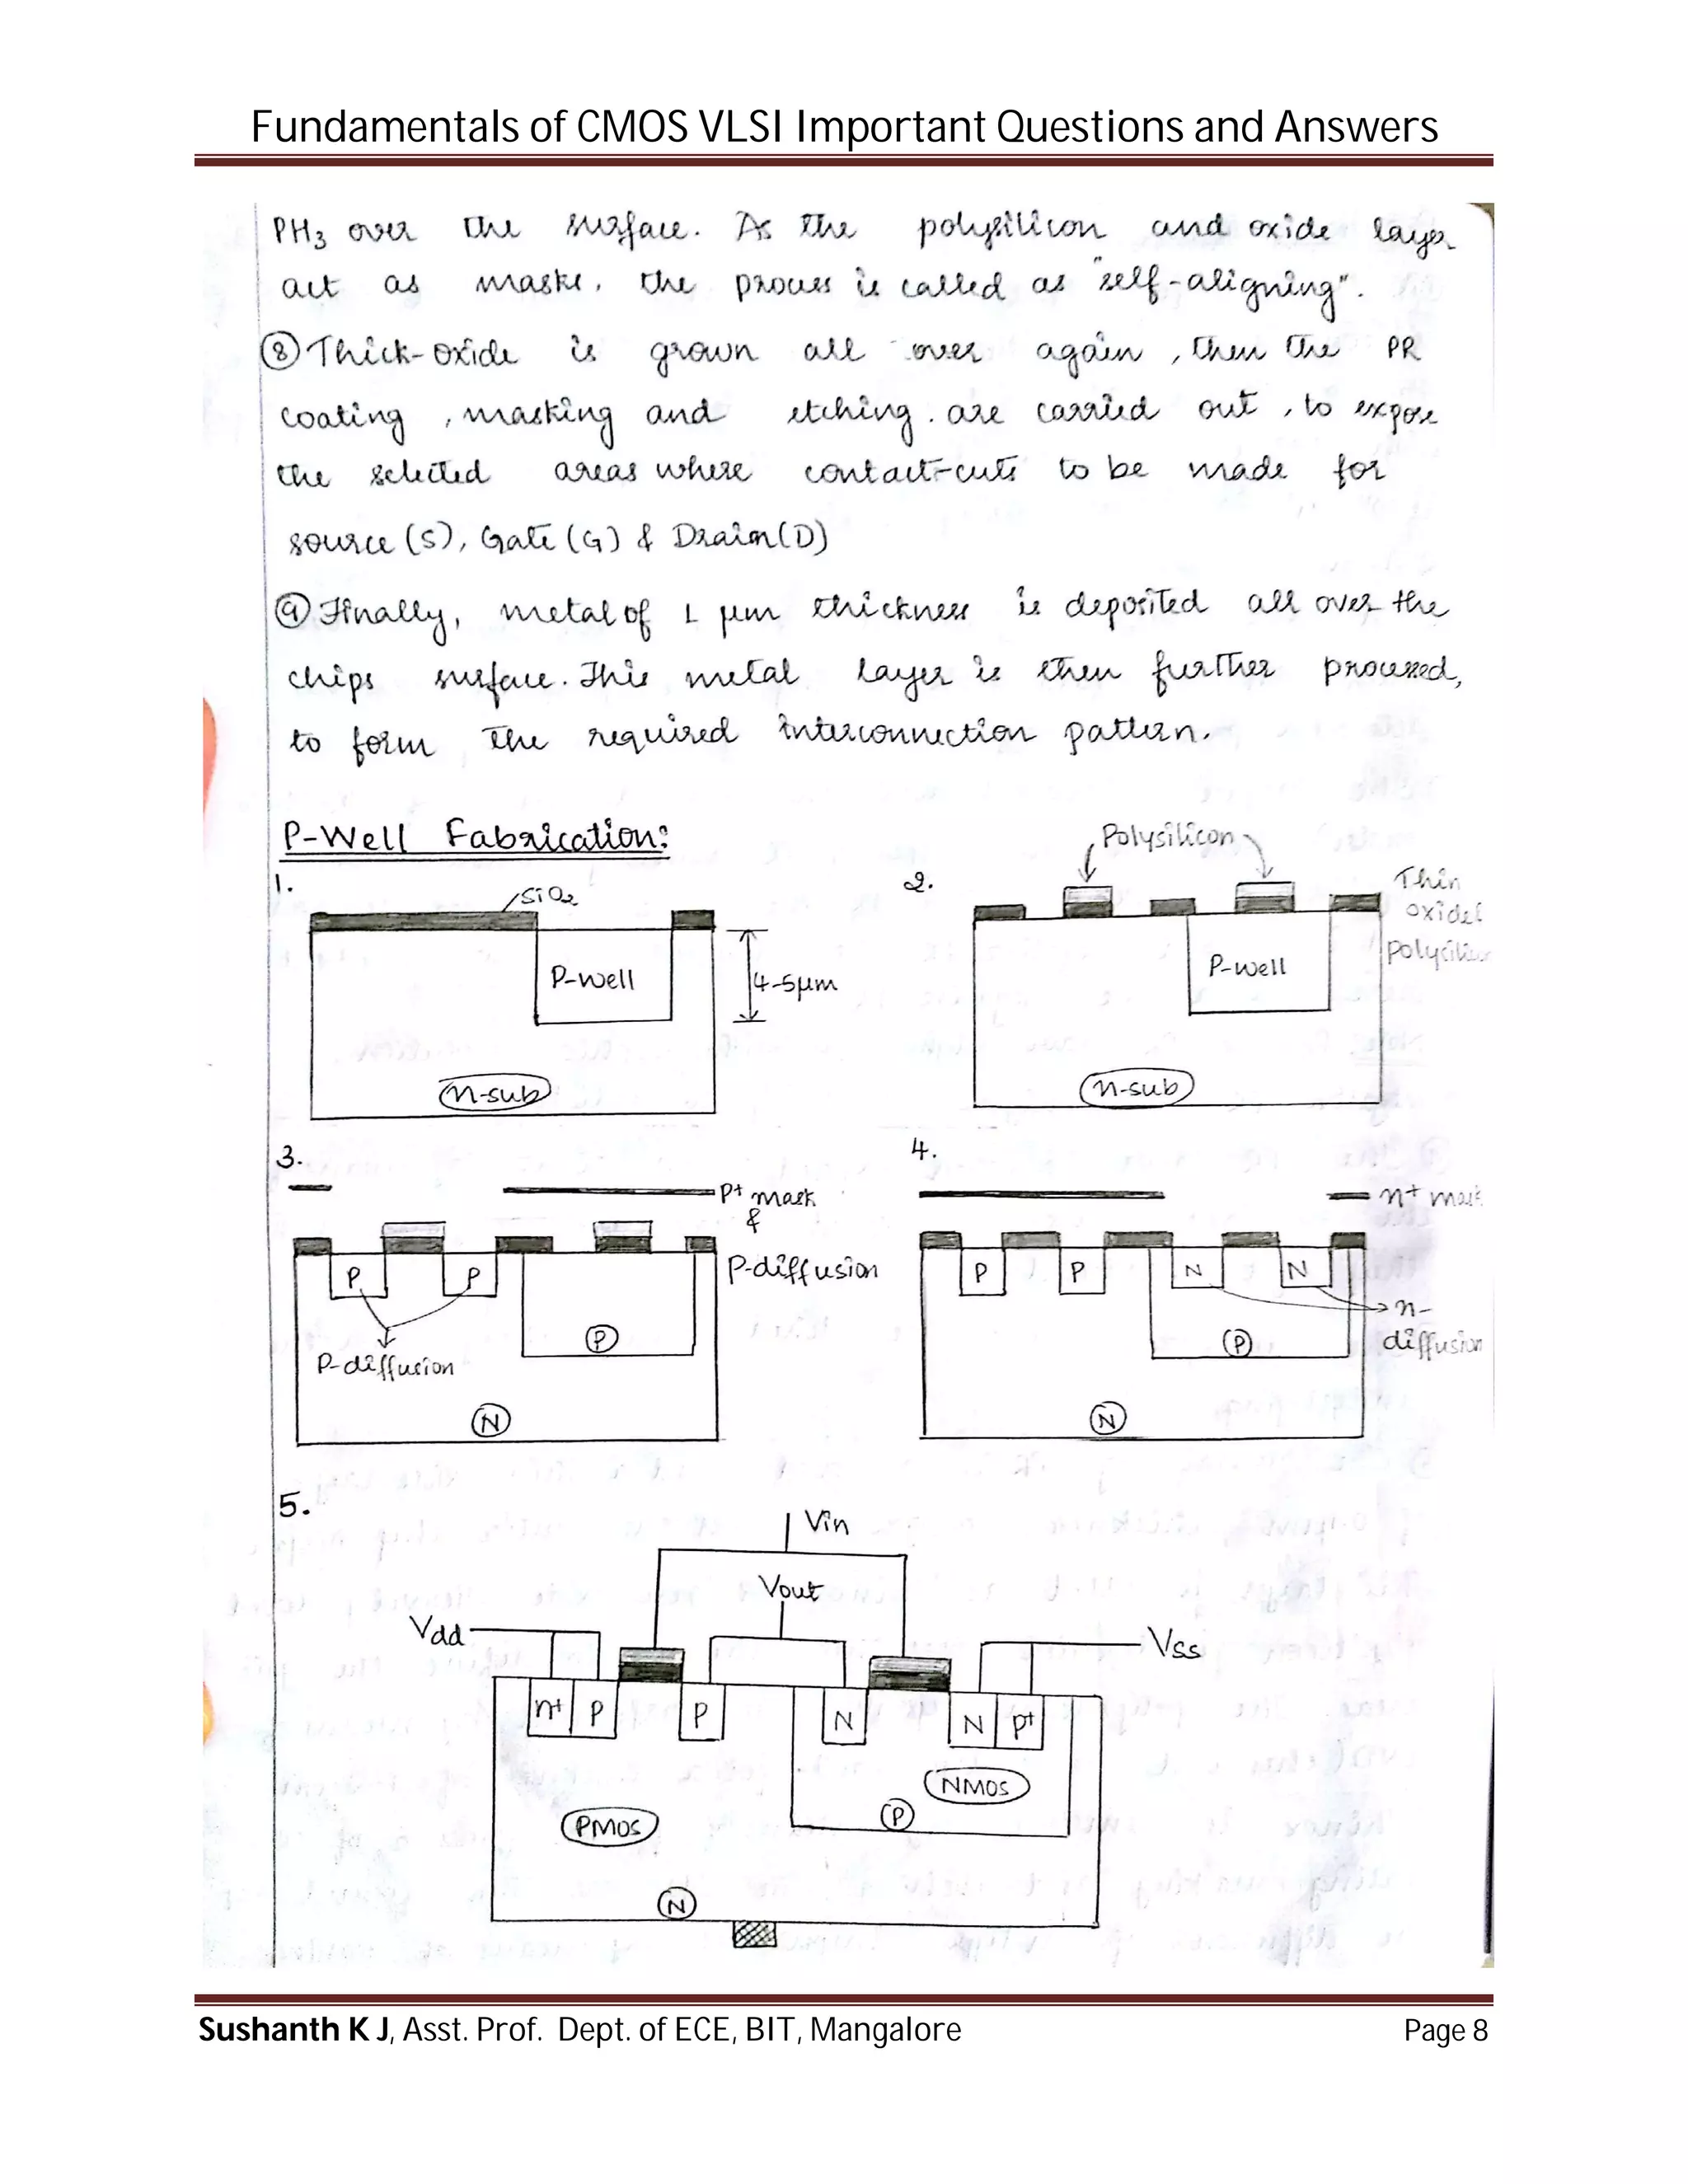 Fundamentals of CMOS VLSI Important Questions and Answers
PH3 over the surface. As the polysilicon and oxide layer
act as masks, the process is called as "self-aligning".
⑧ Thick-oxide is grown all over again, then the PR
coating, masking and etching. are carried out, to expose
the selected areas where contact-cuts to be made for
source (S), Gate (G) & Drain(D)
⑨ Finally, metal of 1 μm thickness is deposited all over the
chips surface. This metal layer is then further processed,
to form the required interconnection pattern.
P-Well Fabrication:
1.
SiO2
P-well
4-5μm
n-sub
2.
Polysilicon
Thin
oxide &
polysilicon
P-well
n-sub
3.
P+ mask
&
P-diffusion
P
P
P
P-diffusion
N
4.
n+ mask
P
P
N
N
n-
diffusion
P
N
5.
Vin
Vout
Vdd
Vss
n+
P
P
N
N
P+
NMOS
P
PMOS
N
Sushanth K J, Asst. Prof. Dept. of ECE, BIT, Mangalore
Page 8